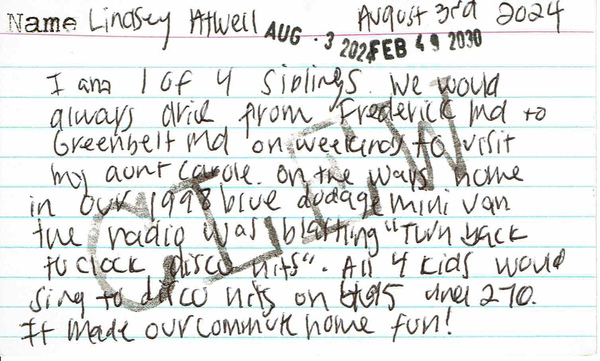 Name Lindsey Atwell August 3rd 2024
AUG - 3 2024 FEB 49 2030
I am 1 of 4 siblings. We would
always drie from Frederick Md to
Greenbelt Md on weekends to visit
my aunt Carole. on the ways home
in our 1998 blue dodage mini van
the radio was blasting "Turn back
to clock disco hits". All 4 kids would
sing to disco hits on 495 and 270.
It made our commute home fun!
CLEW